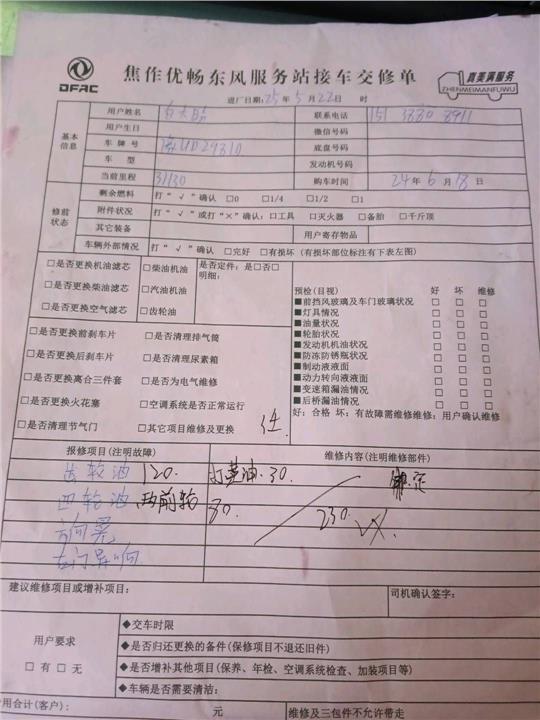 DFAC
焦作优畅东风服务站接车交修单
真美满服务
ZHENMEIMANFUWU
进厂日期:25年5月22日 时
基本信息
用户姓名 联系电话 151 3880 8911
用户生日 微信号码
车牌号 底盘号码
车型 发动机号码
当前里程 31130 购车时间 24年6月18日
修前状态
剩余燃料 打“√”确认 □0 □1/4 □1/2 □1
附件状况 打“√”或打“×”确认:□工具 □灭火器 □备胎 □千斤顶
其它装备 用户寄存物品
车辆外部情况 打“√”确认 □完好 □有损坏(有损坏部位标注有下表左图)
□是否更换机油滤芯 □柴油机油 是否定件:是□否□
明细:
□是否更换柴油滤芯 □汽油机油
□是否更换空气滤芯 □齿轮油
预检(目视) 好 坏 维修
■前挡风玻璃及车门玻璃状况 □ □ □
■灯具情况 □ □ □
■油量状况 □ □ □
■轮胎状况 □ □ □
■发动机机油状况 □ □ □
■防冻防锈瓶状况 □ □ □
■制动液液面 □ □ □
■动力转向液液面 □ □ □
■变速箱漏油情况 □ □ □
■后桥漏油情况 □ □ □
好:合格 坏:有故障需维修维修:用户确认维修
□是否更换前刹车片 □是否清理排气筒
□是否更换后刹车片 □是否清理尿素箱
□是否更换离合三件套 □是否为电气维修
□是否更换火花塞 □空调系统是否正常运行
□是否清理节气门 □其它项目维修及更换
报修项目(注明故障) 维修内容(注明维修部件)
齿轮油 120. 打黄油.30.
四轮油 两前轮 30.
230.
方向
左门异响
建议维修项目或增补项目: 司机确认签字:
用户要求
□有 □无
◆交车时限
◆是否归还更换的备件(保修项目不退还旧件)
◆是否增补其他项目(保养、年检、空调系统检查、加装项目等)
◆车辆是否需要清洁:
费用合计(客户): 元 维修及三包件不允许带走